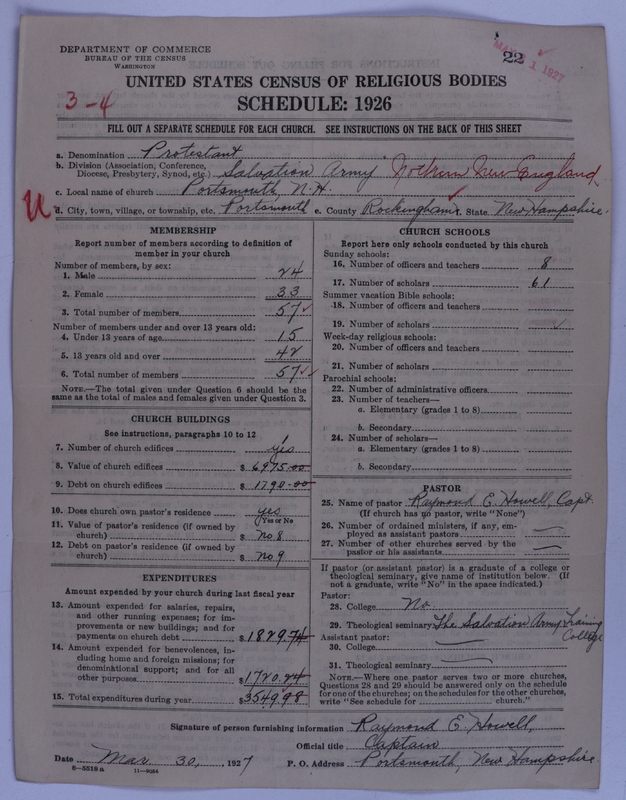 DEPARTMENT OF COMMERCE
BUREAU OF THE CENSUS
WASHINGTON
22
1927
UNITED STATES CENSUS OF RELIGIOUS BODIES
3-4
SCHEDULE: 1926
FILL OUT A SEPARATE SCHEDULE FOR EACH CHURCH. SEE INSTRUCTIONS ON THE BACK OF THIS SHEET
a. Denomination Protestant
b. Division (Association, Conference, Diocese, Presbytery, Synod, etc.) Salvation Army Northern New England
c. Local name of church Portsmouth, N.H.
d. City, town, village, or township, etc. Portsmouth e. County Rockingham f. State New Hampshire.
MEMBERSHIP
Report number of members according to definition of
member in your church
Number of members, by sex:
1. Male 24
2. Female 33
3. Total number of members 57
Number of members under and over 13 years old:
4. Under 13 years of age 15
5. 13 years old and over 42
6. Total number of members 57
NOTE.—The total given under Question 6 should be the
same as the total of males and females given under Question 3.
CHURCH BUILDINGS
See instructions, paragraphs 10 to 12
7. Number of church edifices 1 yes
8. Value of church edifices $ 6975.00
9. Debt on church edifices $ 1790.00
10. Does church own pastor's residence yes
(Yes or No
11. Value of pastor's residence (if owned by
church) $ no 8
12. Debt on pastor's residence (if owned by
church) $ no 9
EXPENDITURES
Amount expended by your church during last fiscal year
13. Amount expended for salaries, repairs,
and other running expenses; for im-
provements or new buildings; and for
payments on church debt $ 1829.74
14. Amount expended for benevolences, in-
cluding home and foreign missions; for
denominational support; and for all
other purposes $ 1720.24
15. Total expenditures during year $ 3549.98
CHURCH SCHOOLS
Report here only schools conducted by this church
Sunday schools:
16. Number of officers and teachers 8
17. Number of scholars 61
Summer vacation Bible schools:
18. Number of officers and teachers
19. Number of scholars
Week-day religious schools:
20. Number of officers and teachers
21. Number of scholars
Parochial schools:
22. Number of administrative officers
23. Number of teachers—
a. Elementary (grades 1 to 8)
b. Secondary
24. Number of scholars—
a. Elementary (grades 1 to 8)
b. Secondary
PASTOR
25. Name of pastor Raymond E. Howell, Capt
(If church has no pastor, write "None")
26. Number of ordained ministers, if any, em-
ployed as assistant pastors
27. Number of other churches served by the
pastor or his assistants
If pastor (or assistant pastor) is a graduate of a college or
theological seminary, give name of institution below. (If
not a graduate, write "No" in the space indicated.)
Pastor:
28. College No
29. Theological seminary The Salvation Army Training College
Assistant pastor:
30. College
31. Theological seminary
NOTE.—Where one pastor serves two or more churches,
Questions 28 and 29 should be answered only on the schedule
for one of the churches; on the schedules for the other churches,
write "See schedule for church."
Signature of person furnishing information Raymond E. Howell,
Official title Captain
Date Mar 30, 1927 P. O. Address Portsmouth, New Hampshire
8—5518a 11—9054